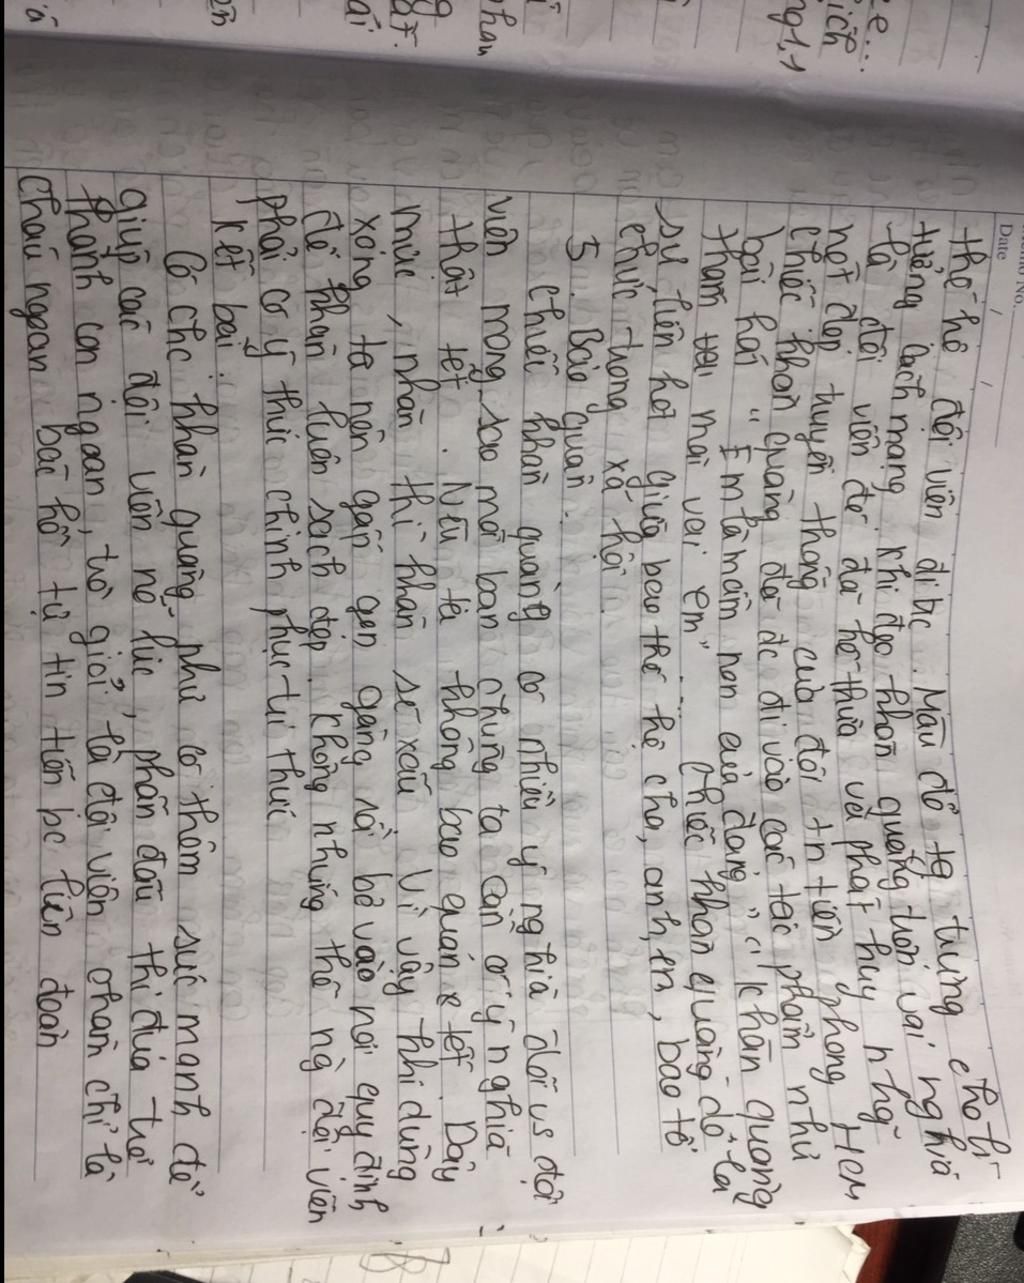 Date
thế hệ đội viên đi bc. Màu đỏ tg trưng cho lí
tưởng cách mạng. Khi đeo khăn quàng trên vai nghĩa
là đội viên đó đã kế thừa và phát huy nhg~
nét đẹp truyền thống của đội tn tiền phong HCM
chiếc khăn quàng đỏ đc đi vào các tác phẩm như
bài hát "Em là mầm non của đảng", "khăn quàng
thắm mãi vai em"... chiếc khăn quàng đỏ là
sự liên hợp giữa bao thế hệ cha, anh, em, bao tổ
chức trong xã hội.
5. Bảo quản.
chiếc khăn quàng có nhiều ý nghĩa đối vs đội
viên mong sao mỗi bạn chúng ta cần có ý nghĩa
thật tốt. Nếu ta không bảo quản tốt. Dây
mực, nhăn thì khăn sẽ xấu. Vì vậy khi dùng
xong ta nên gấp gọn gàng rồi bỏ vào nơi quy định
để khăn luôn sạch đẹp. không những thế ng đội viên
phải có ý thức chinh phục tri thức
kết bài.
Có chc khăn quàng như có thêm sức mạnh để
giúp các đội viên nỗ lực, phấn đấu thi đua trở
thành con ngoan, trò giỏi, là đội viên chăm chỉ là
cháu ngoan bác hồ tự tin tiến bc liên đoàn